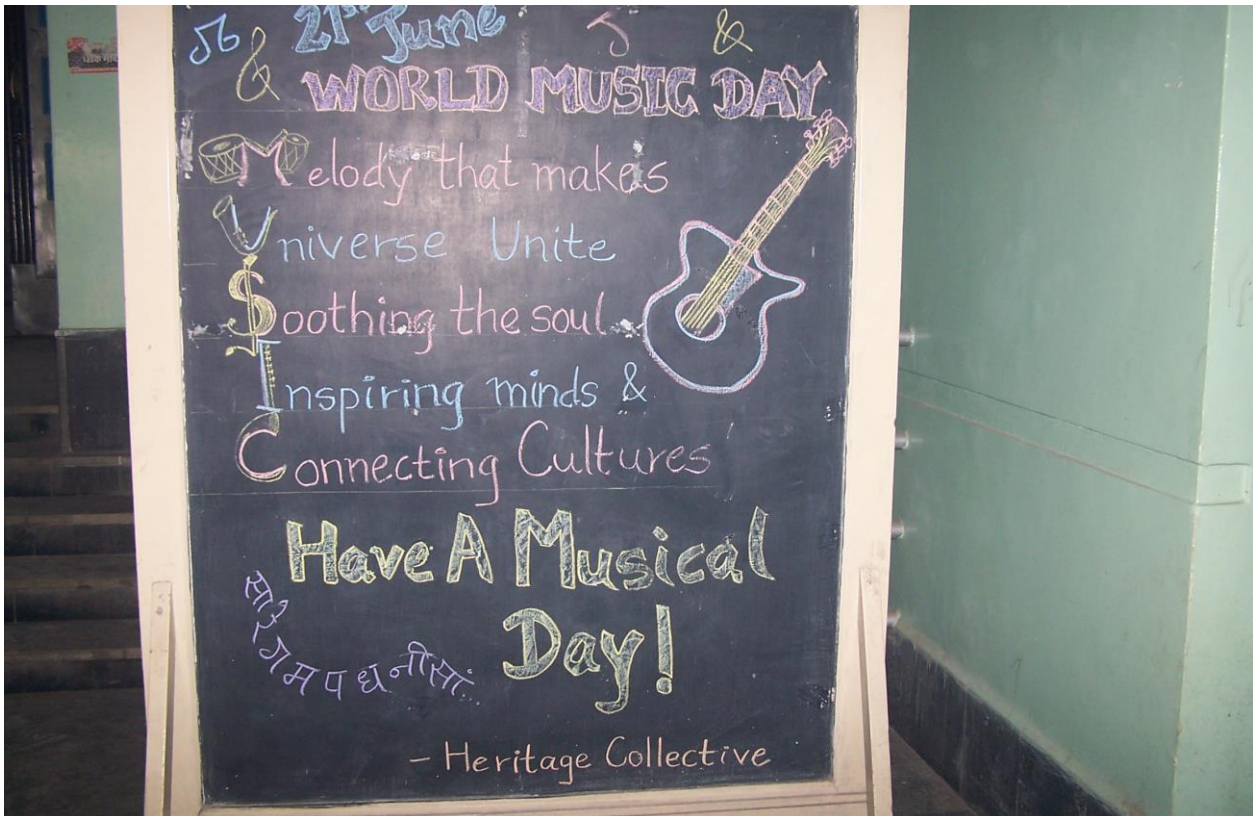 21st June
WORLD MUSIC DAY
Melody that makes
Universe Unite
Soothing the soul
Inspiring minds &
Connecting Cultures
Have A Musical
Day!
सा रे ग म प ध नी सां
- Heritage Collective